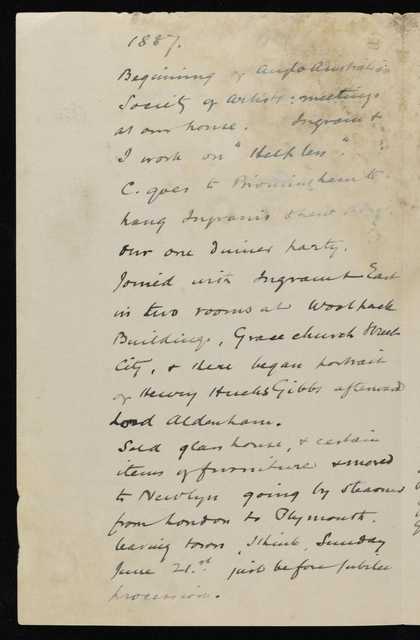 1887.
Beginning of Anglo Australian
Society of Artists: meetings
at our house. Ingram &
I work on "Helpless".
C. goes to Birmingham to
hang Ingram's
our one dinner party.
Joined with Ingram & East
in two rooms at Woolpack
Buildings, Gracechurch Street
City, & there began portrait
of Henry Hucks Gibbs afterward
Lord Aldenham.
Sold glass house, & certain
items of furniture & moved
to Newlyn going by steamer
from London to Plymouth.
leaving town, I think, Sunday
June 21.st just before Jubilee
procession.